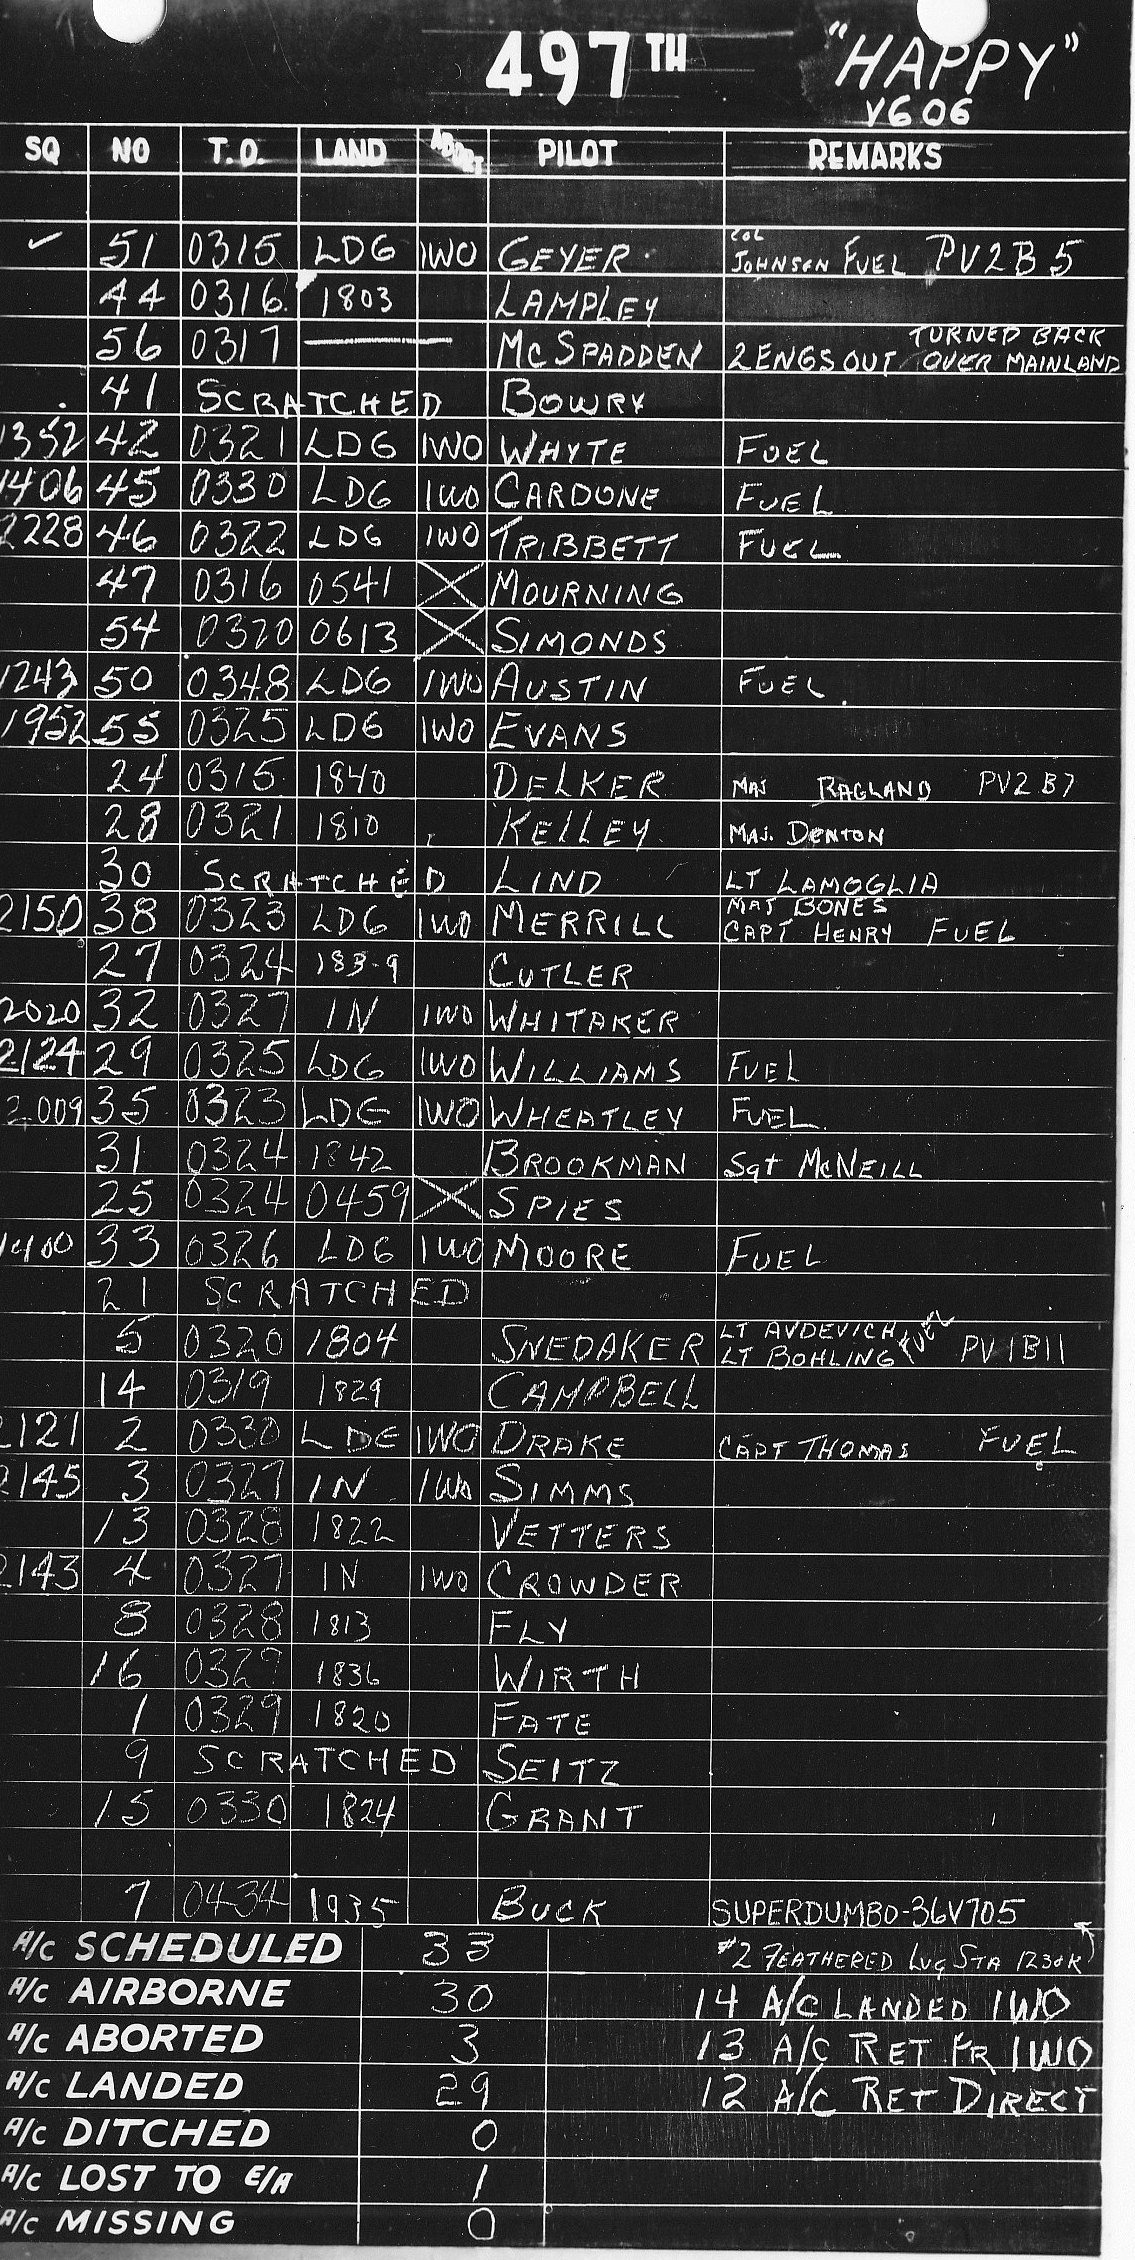 497TH "HAPPY"
V606
SQ NO T.O. LAND ABORT PILOT REMARKS
✓ 51 0315 LDG IWO GEYER COL JOHNSON FUEL PV2B5
44 0316 1803 LAMPLEY
56 0317 — MCSPADDEN 2 ENGS OUT TURNED BACK OVER MAINLAND
41 SCRATCHED BOWRY
1352 42 0321 LDG IWO WHYTE FUEL
1406 45 0330 LDG IWO CARDONE FUEL
2228 46 0322 LDG IWO TRIBBETT FUEL
47 0316 0541 X MOURNING
54 0320 0613 X SIMONDS
1243 50 0348 LDG IWO AUSTIN FUEL
1952 55 0325 LDG IWO EVANS
24 0315 1840 DELKER MAJ RAGLAND PV2 B7
28 0321 1810 KELLEY MAJ. DENTON
30 SCRATCHED LIND LT LAMOGLIA
2150 38 0323 LDG IWO MERRILL MAJ BONES CAPT HENRY FUEL
27 0324 1839 CUTLER
2020 32 0327 IN IWO WHITAKER
2124 29 0325 LDG IWO WILLIAMS FUEL
2009 35 0323 LDG IWO WHEATLEY FUEL
31 0324 1842 BROOKMAN Sgt MCNEILL
25 0324 0459 X SPIES
1400 33 0326 LDG IWO MOORE FUEL
21 SCRATCHED
5 0320 1804 SNEDAKER LT AVDEVICH LT BOHLING FUEL PV1B11
14 0319 1829 CAMPBELL
2121 2 0330 LDG IWO DRAKE CAPT THOMAS FUEL
2145 3 0327 IN IWO SIMMS
13 0328 1822 VETTERS
2143 4 0327 IN IWO CROWDER
8 0328 1813 FLY
16 0329 1836 WIRTH
1 0329 1820 FATE
9 SCRATCHED SEITZ
15 0330 1824 GRANT
7 0434 1935 BUCK SUPERDUMBO-36V705
A/C SCHEDULED 33 #2 FEATHERED LVG STA 1230K
A/C AIRBORNE 30 14 A/C LANDED IWO
A/C ABORTED 3 13 A/C RET FR IWO
A/C LANDED 29 12 A/C RET DIRECT
A/C DITCHED 0
A/C LOST TO E/A 1
A/C MISSING 0